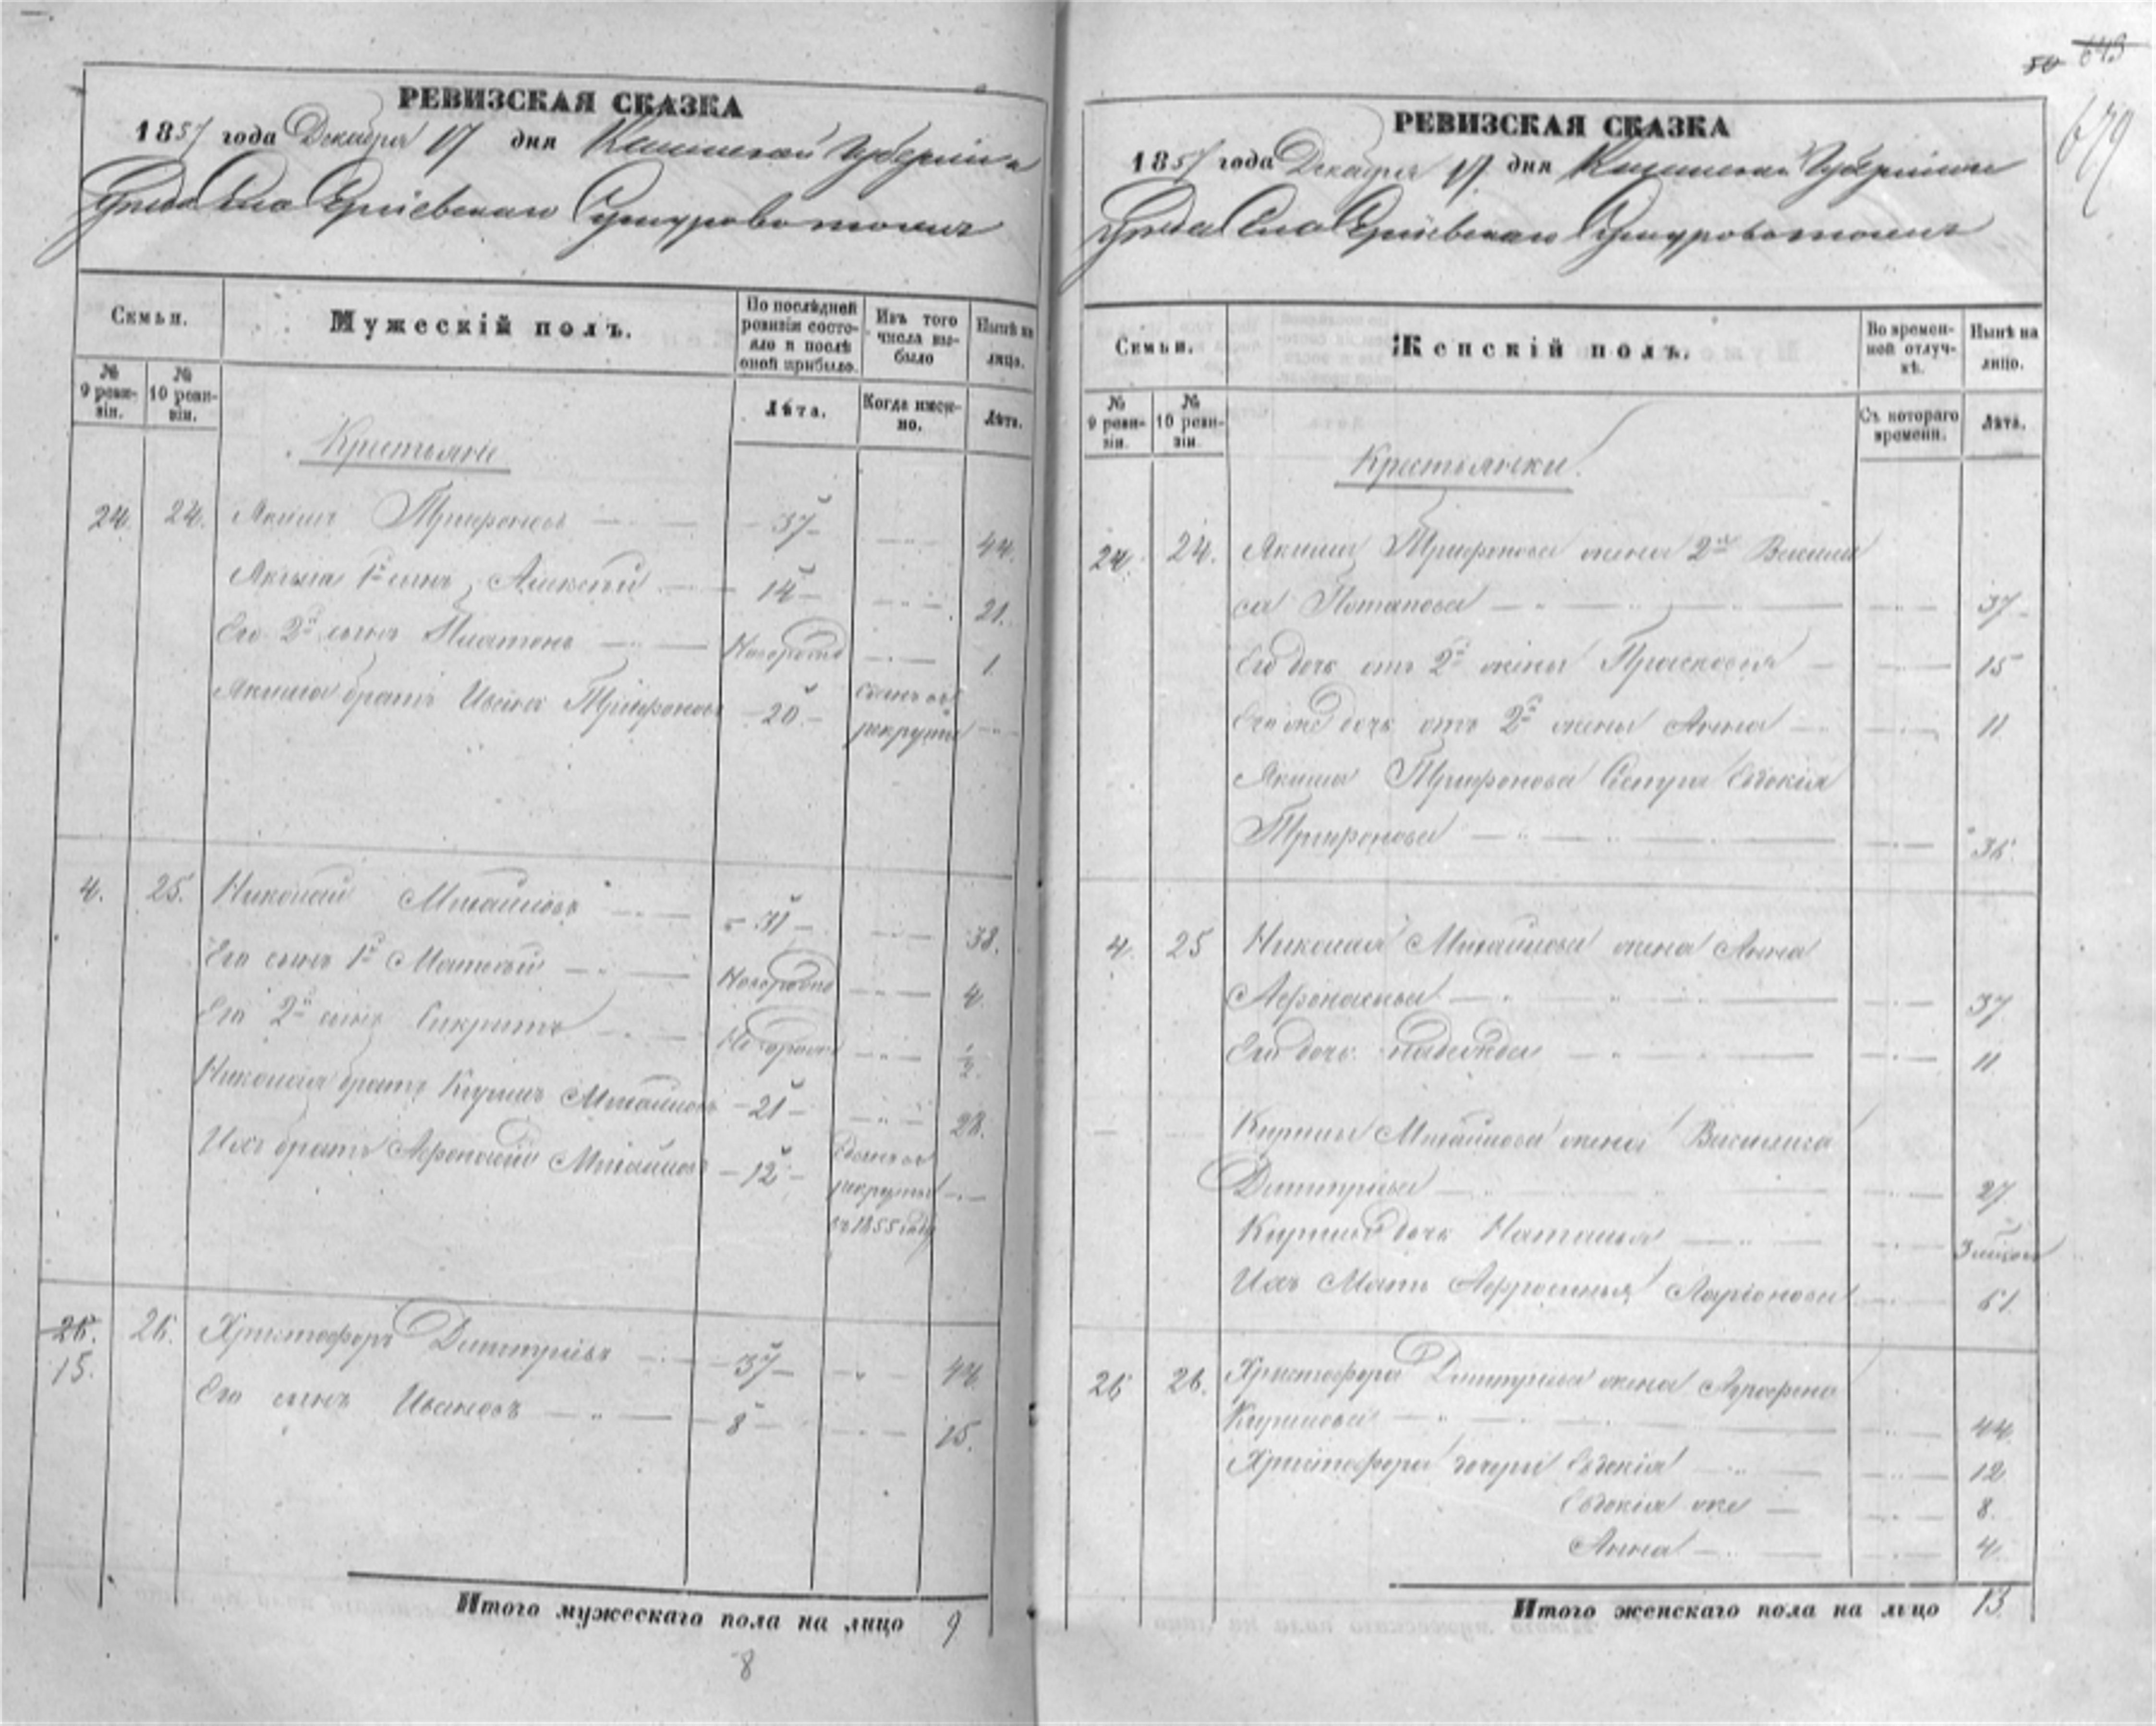 РЕВИЗСКАЯ СКАЗКА
1857 года Декабря 17 дня Губернии
Уѣзда Села
Семьи.
Мужескій полъ.
По послѣдней ревизіи состояло и послѣ оной прибыло.
Изъ того числа выбыло
Нынѣ на лицо.
№ 9 ревизіи.
№ 10 ревизіи.
Лѣта.
Когда именно.
Лѣта.
Крестьяне
24. 24. Якимъ Трифоновъ 37 44.
Якима 1й сынъ Алексѣй 14 21.
Его 2й сынъ Платонъ Новорожд 1
Якима братъ Иванъ Трифоновъ 20 сданъ въ рекруты
4. 25. Николай Михайловъ 31 38.
Его сынъ 1й Матвѣй Новорожд 4.
Его 2й сынъ Новорожд 1/2.
Николая братъ Михайловъ 21 28.
Ихъ братъ Афонасій Михайловъ 12 сданъ въ рекруты въ 1855 году
26. 15. 26. Христофоръ Димитріевъ 37 44.
Его сынъ Ивановъ 8 15.
Итого мужескаго пола на лицо 9
8
50 643
679
РЕВИЗСКАЯ СКАЗКА
1857 года Декабря 17 дня Губернии
Уѣзда Села
Семьи.
Женскій полъ.
Во временной отлучкѣ.
Нынѣ на лицо.
№ 9 ревизіи.
№ 10 ревизіи.
Съ котораго времени.
Лѣта.
Крестьянки.
24. 24. Якима Трифонова жена 2я Васили
са Потапова 37
Его дочь отъ 2й жены Прасковья 15
Его же дочь отъ 2й жены Анна 11
Якима Трифонова Сестра Евдокія
Трифонова 36.
4. 25 Николая Михайлова жена Анна
Афонасьева 37
Его дочь Надежда 11
Михайлова жена Василиса
Димитріева 27
дочь Наталья
Ихъ Мать Афросинья Ларіонова 61
26 26. Христофора Димитріева жена Аграфена
44.
Христофора дочери Евдокія 12
Евдокія же 8.
Анна 4.
Итого женскаго пола на лицо 13